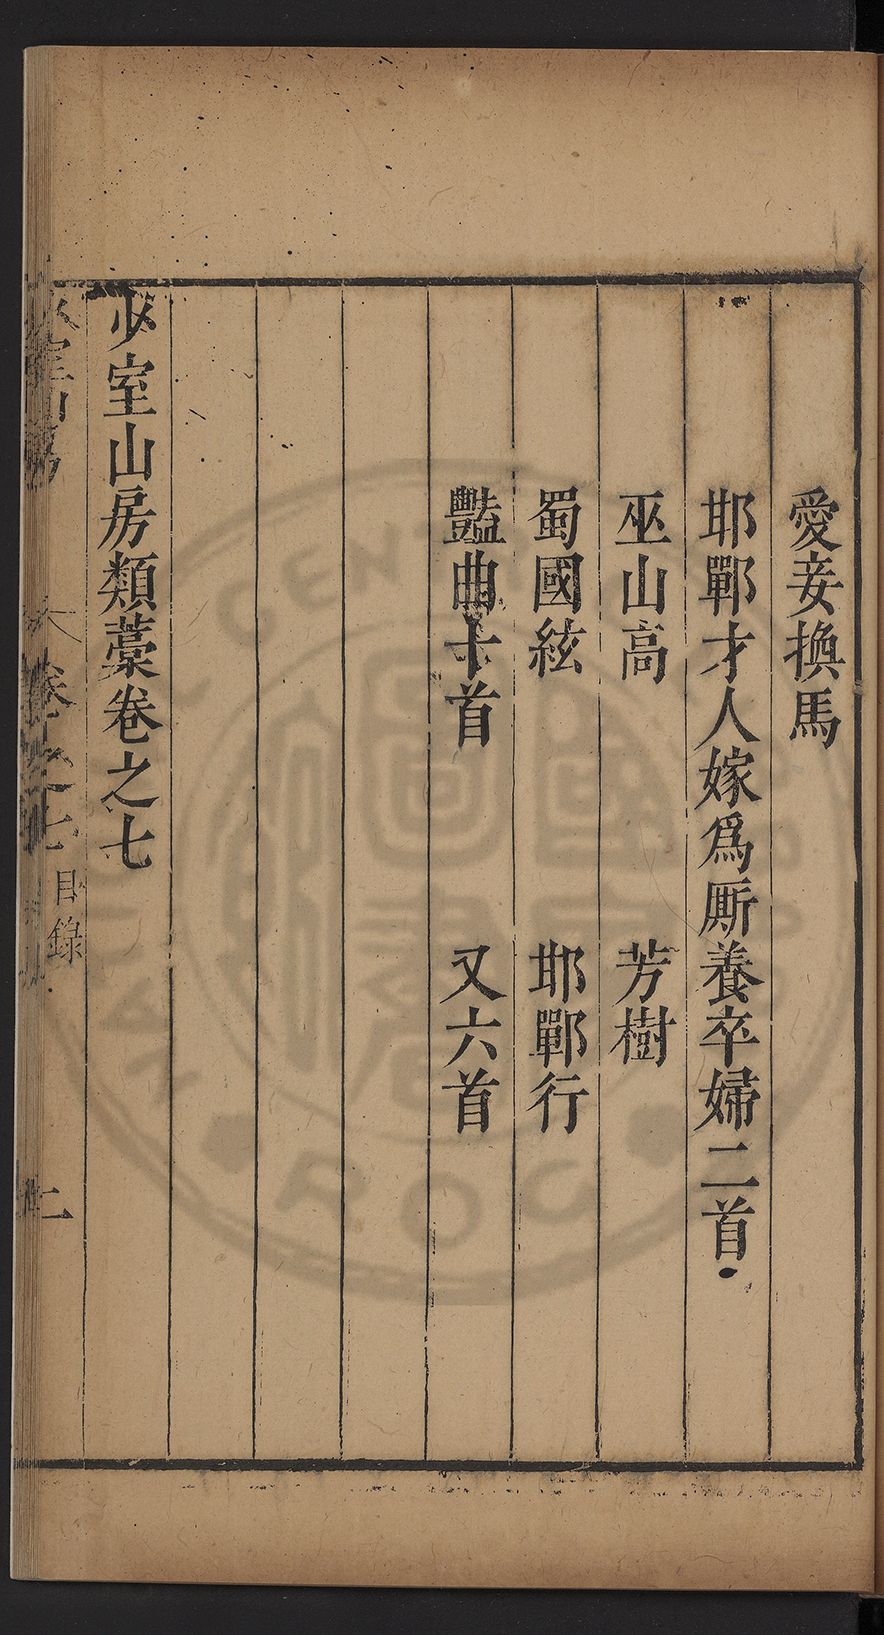 愛妾換馬
邯鄲才人嫁爲厮養卒婦二首
巫山高　芳樹
蜀國絃　邯鄲行
豔曲十首　又六首
少室山房類藁卷之七
卷之七　目錄　二